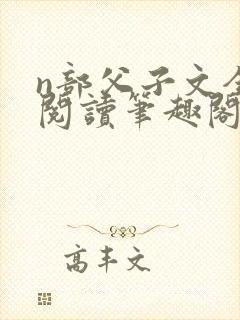 n部父子文全
閱讀筆趣閣
高丰文